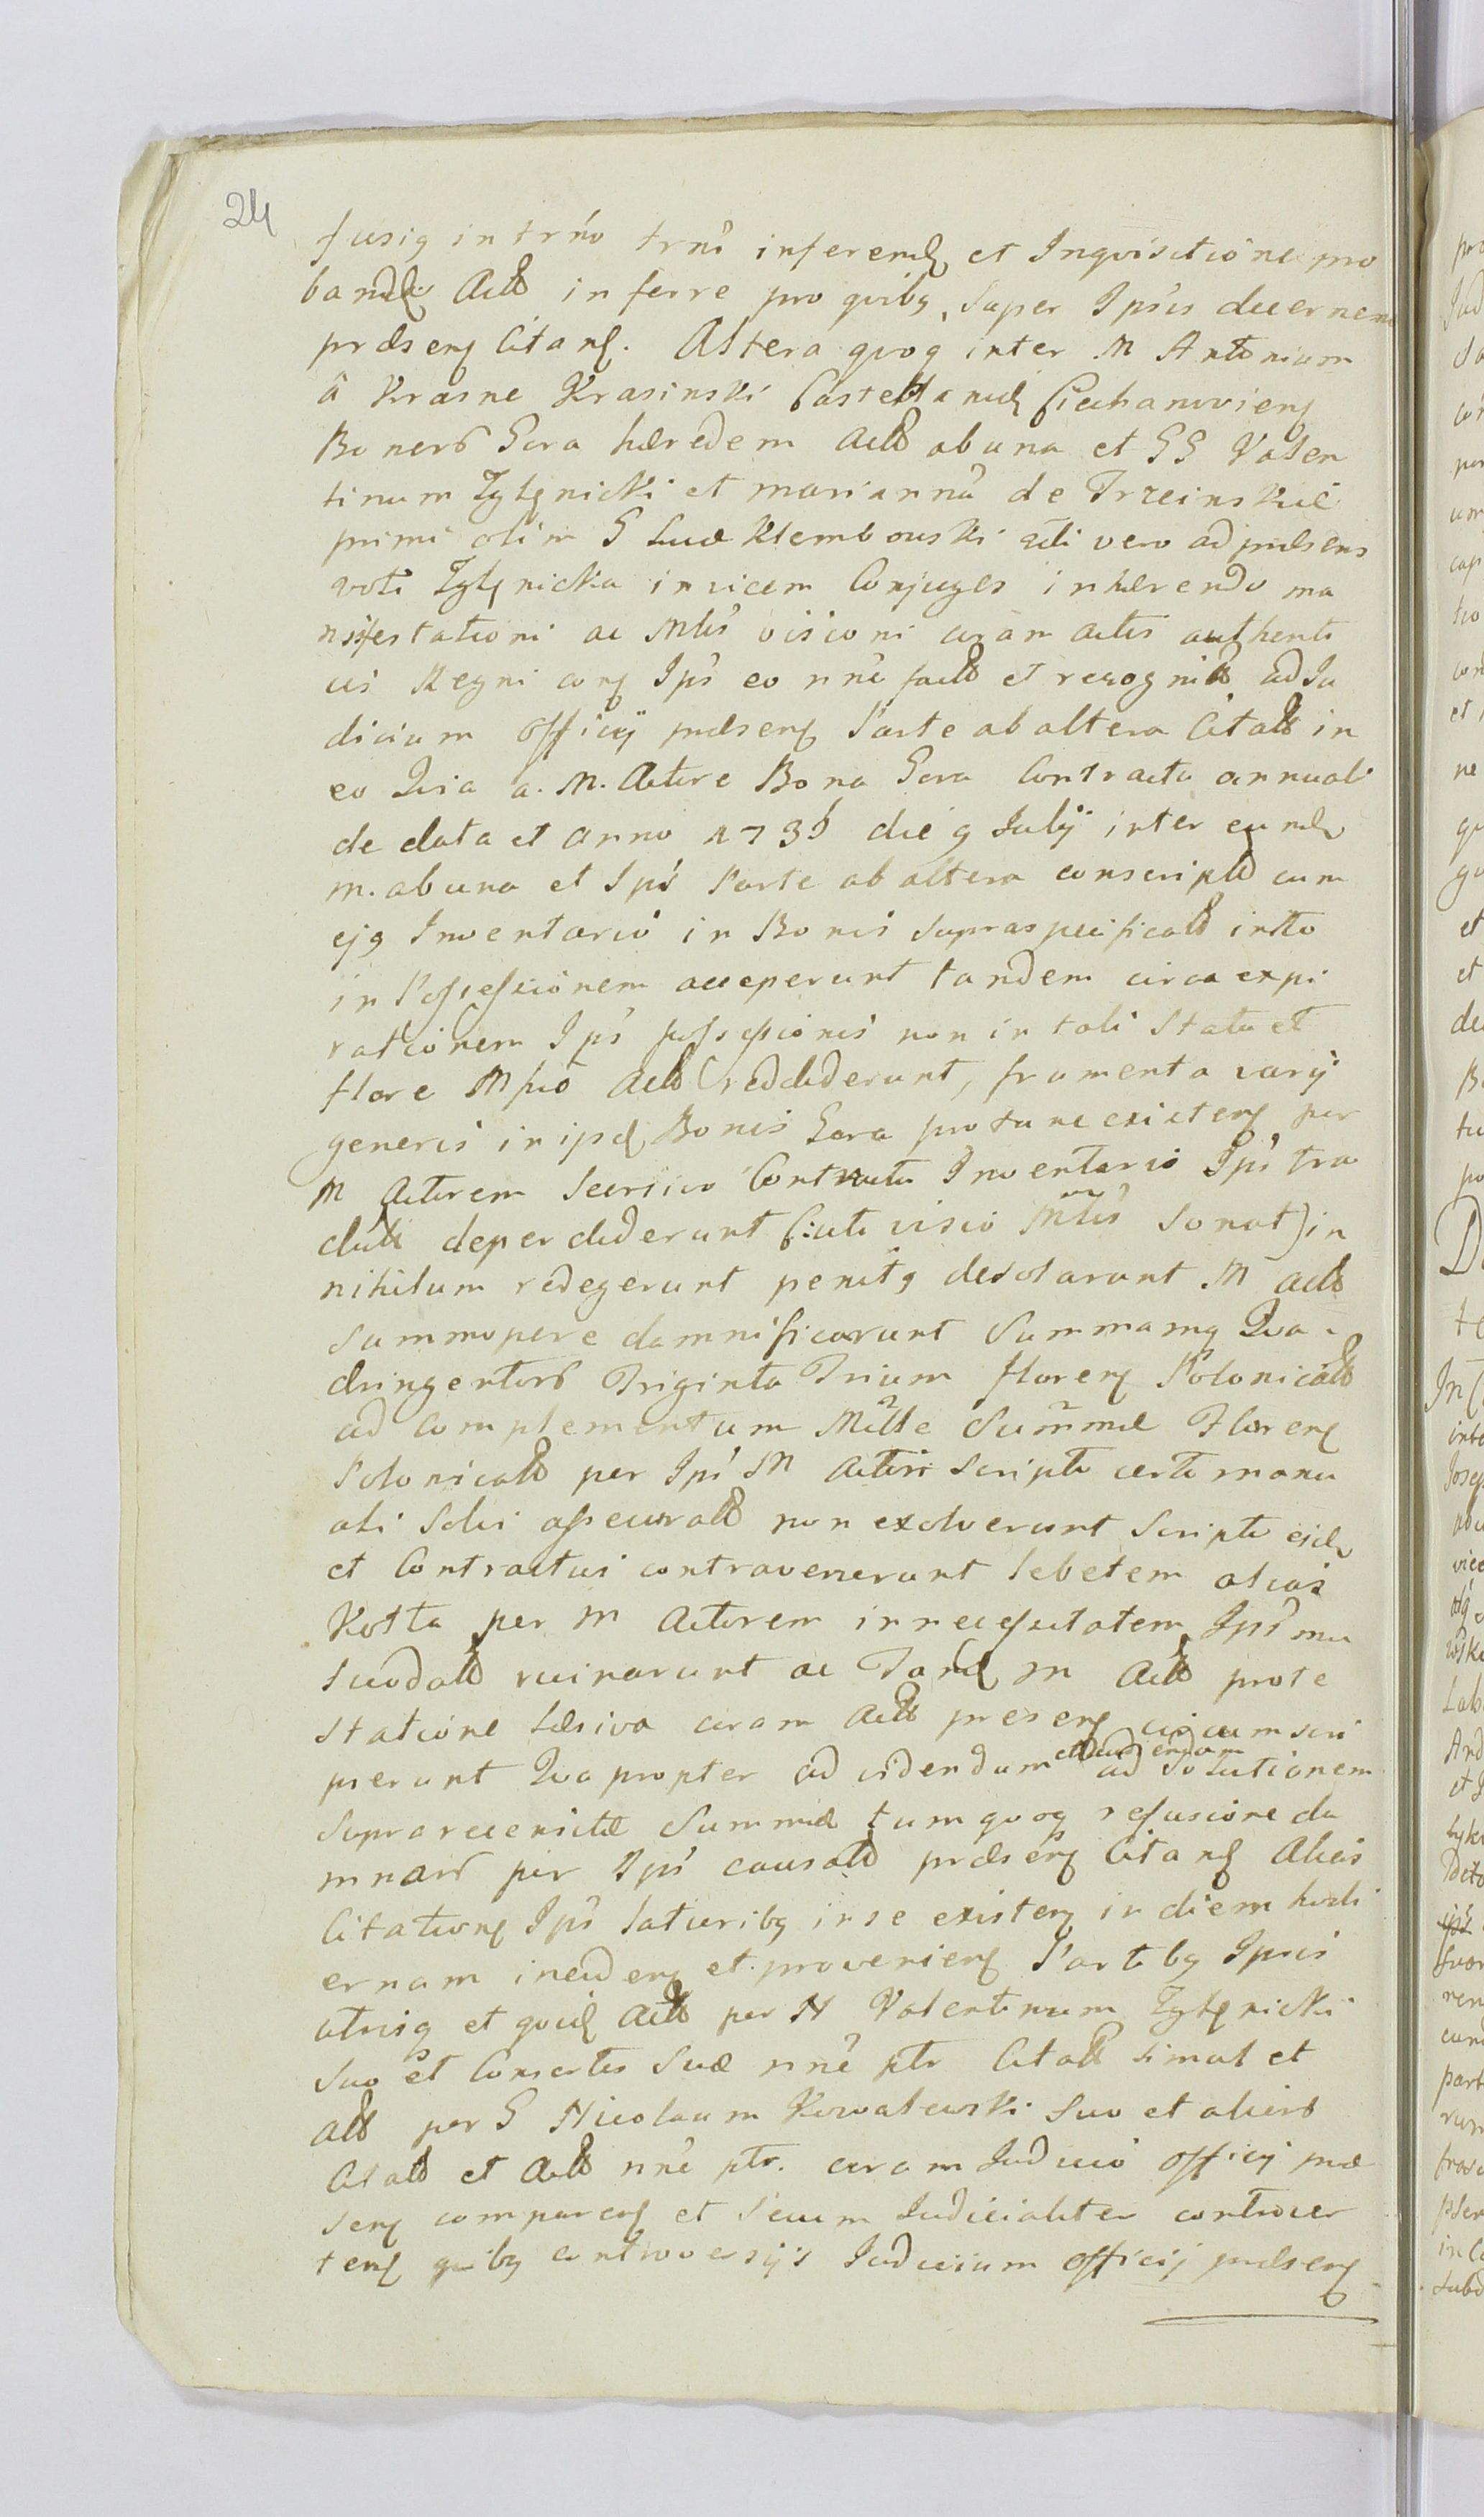 24
fusiq in trño trni inferendę et Inqvisitione pro
bandę Actt inferre pro qvibq super Ipsis decernen
præsenę Citanę. Altera qvoq inter M Antonium
â Krasne Krasinski Castellanuę Ciechanovienę
Bonerȣ Gora hæredem Actt ab una et GG Valen
tinum Zglęnicki et mariannã de Trzcinskie
primi olim G Lucæ Klembowski 2di vero ad præsens
voti Zglęnicka invicem Conjuges inhærendo ma
nifestationi ac Mlis visioni coram actis authenti
cis Regni conę Ips eo nnē factt et recognitt ad Iu
dicium Officij præsenę Parte ab altera Citatt in
eo Qvia a. M. Actore Bona Gora Contractu annuali
de data et anno 1736 die 9 Julij inter eundę
M. ab una et Ips Parte ab altera conscriptt cum
ejq Inventario in Bonis supraspecificatt initto
in Possessionem acceperunt tandem circa expi
rationem Ips possessionis non in tali Statu et
flore Mfico Actt reddiderunt, frumenta varij
generis in ipsę Bonis Gora pro tunc existenę per
M Actorem Secrsivo Contractu Inventario Ips tra
ditt deperdiderunt (:uti visio Mlis sonat) in
nihilum redegerunt penitq desolarunt M actt
summopere damnificarunt Summamq Qva-
dringentorȣ Triginta Trium florenę Polonicatt
ad complementum Mille Summæ Florenę
Polonicatt per Ips M Actori scripto certo manu
ali solvi assecuratt non exolverunt scripto eidę
et Contractui contravenerunt lebetem alias
Kotta per M Actorem in necessitatem Ips mu
tuodatt ruinarunt ac Tandę M Actt prote
statione læsiva coram Actt presenę circumscri
pserunt Qvapropter ad videndum et audiendum ad Solutionem
suprarecensitæ Summæ tum qvoq refusione da
mnorȣ per Ips causatt præsenę Citanę Alias
Citationę Ips latioribq in se existenę in diem hodi
ernam incidenę et provenienę Partibq Ipsis
utrisq et qvidę Actt per N Valentinum Zglęnicki
suo et Consortis suæ nnē ptr Citatt simul et
Att per G Nicolaum Kowalewski suo et aliorȣ
Citatt et Actt nnē ptr. coram Judicio Officij præ
senę comparenę et secum Judicialiter controver
tenę qvibq controversijs Judicium Officij præsenę